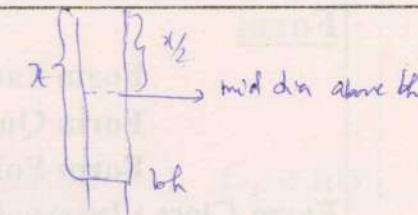 x
x/2
mid dia above bh
bh